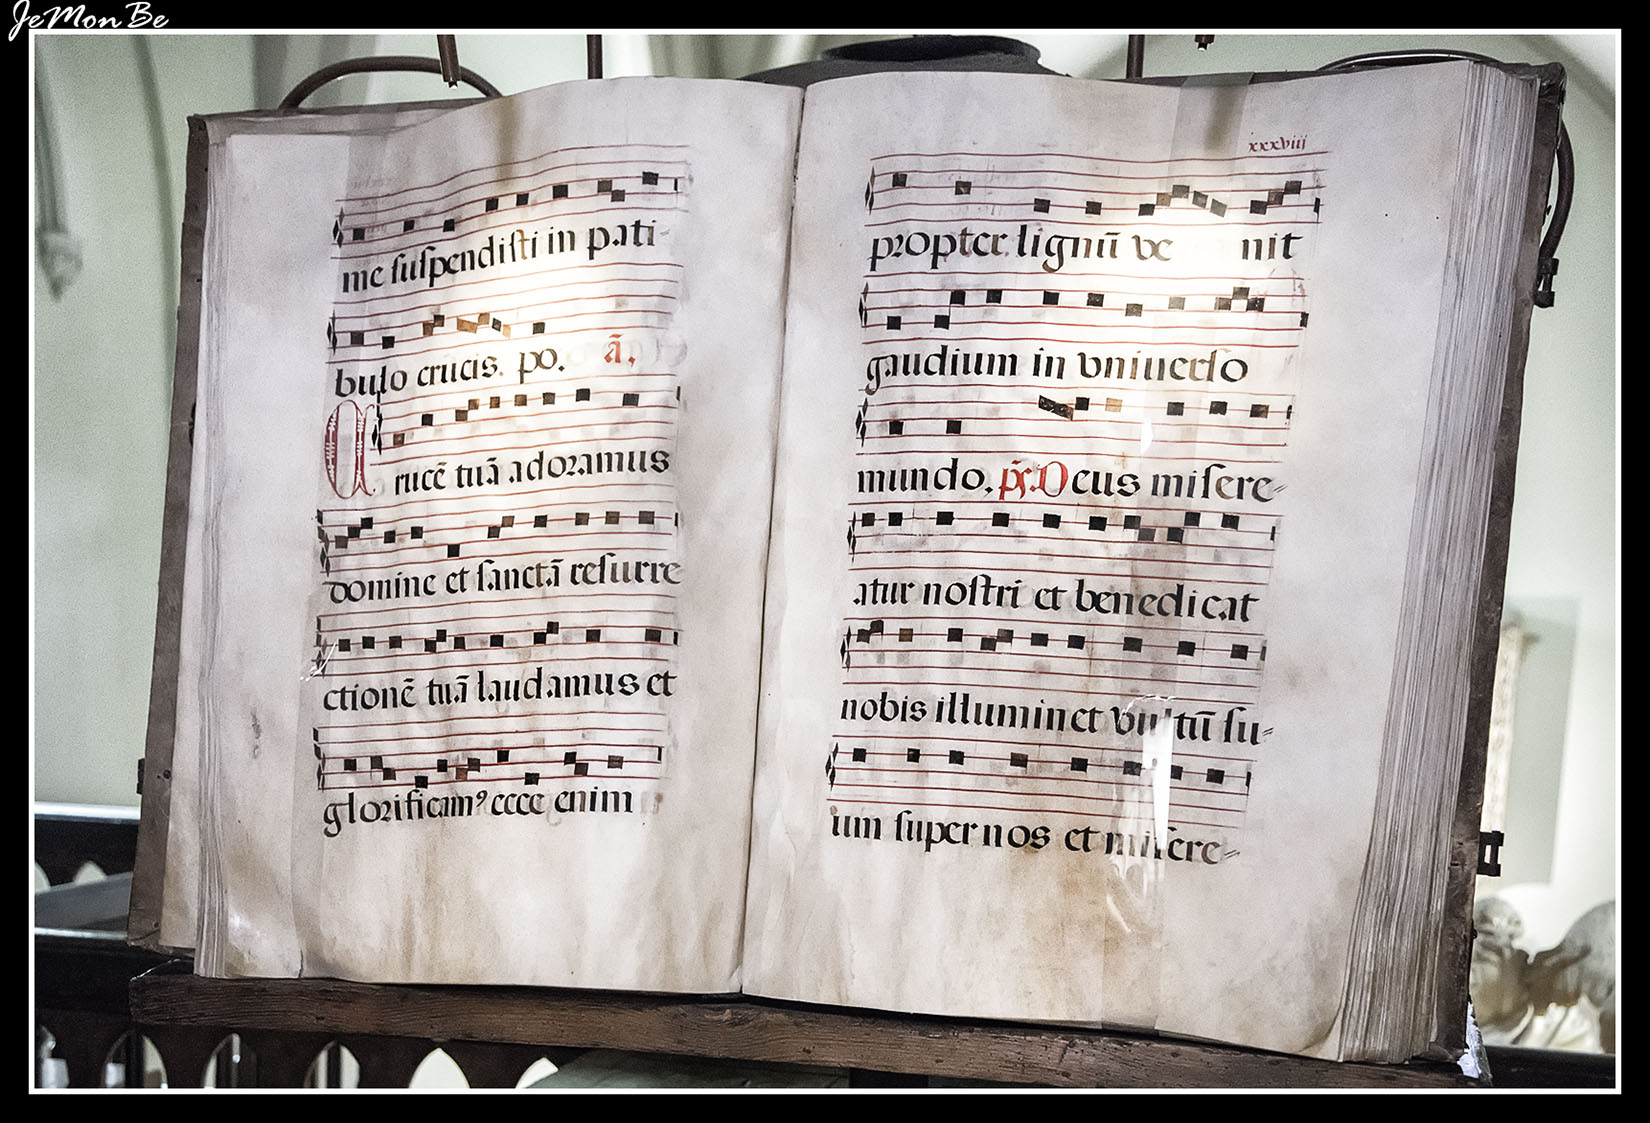 JeMonBe
me suspendisti in pati-
bulo crucis. po. ā,
Crucē tuā adoramus
domine et sanctā resurre
ctionē tuā laudamus et
glorificam⁹ ecce enim
xxxviij
propter lignū ve nit
gaudium in vniuerso
mundo. ps̄. Deus misere-
atur nostri et benedicat
nobis illuminet vultū su-
um super nos et misere-